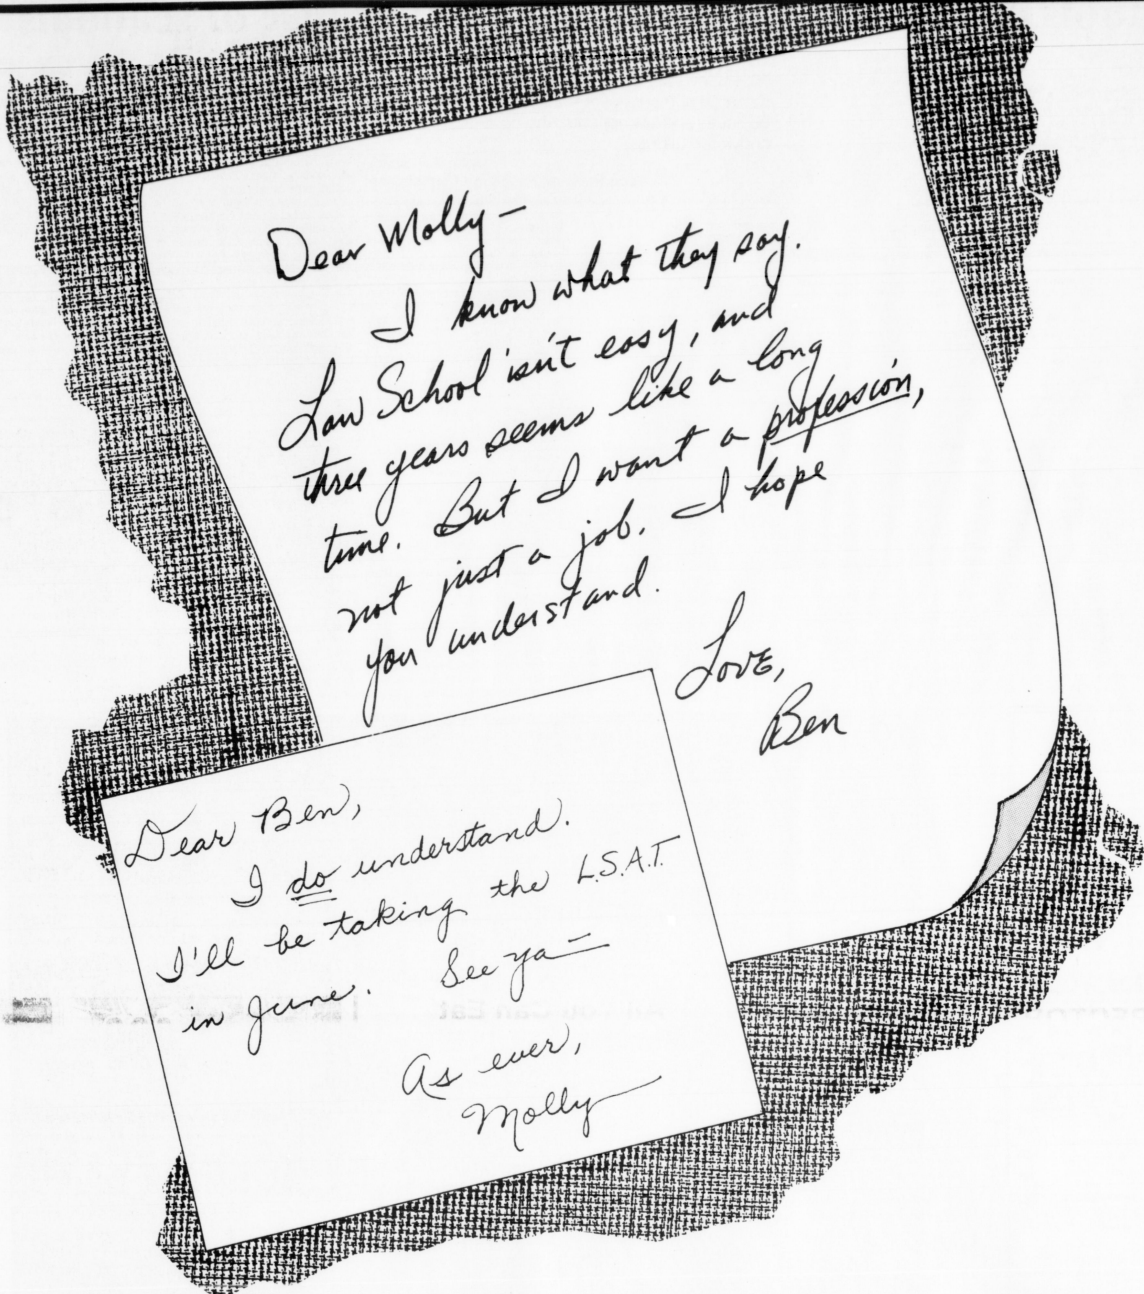 Dear Molly –
I know what they say.
Law School isn't easy, and
three years seems like a long
time. But I want a profession,
not just a job. I hope
you understand.
Love,
Ben
Dear Ben,
I do understand.
I'll be taking the L.S.A.T.
in June. See ya –
As ever,
Molly